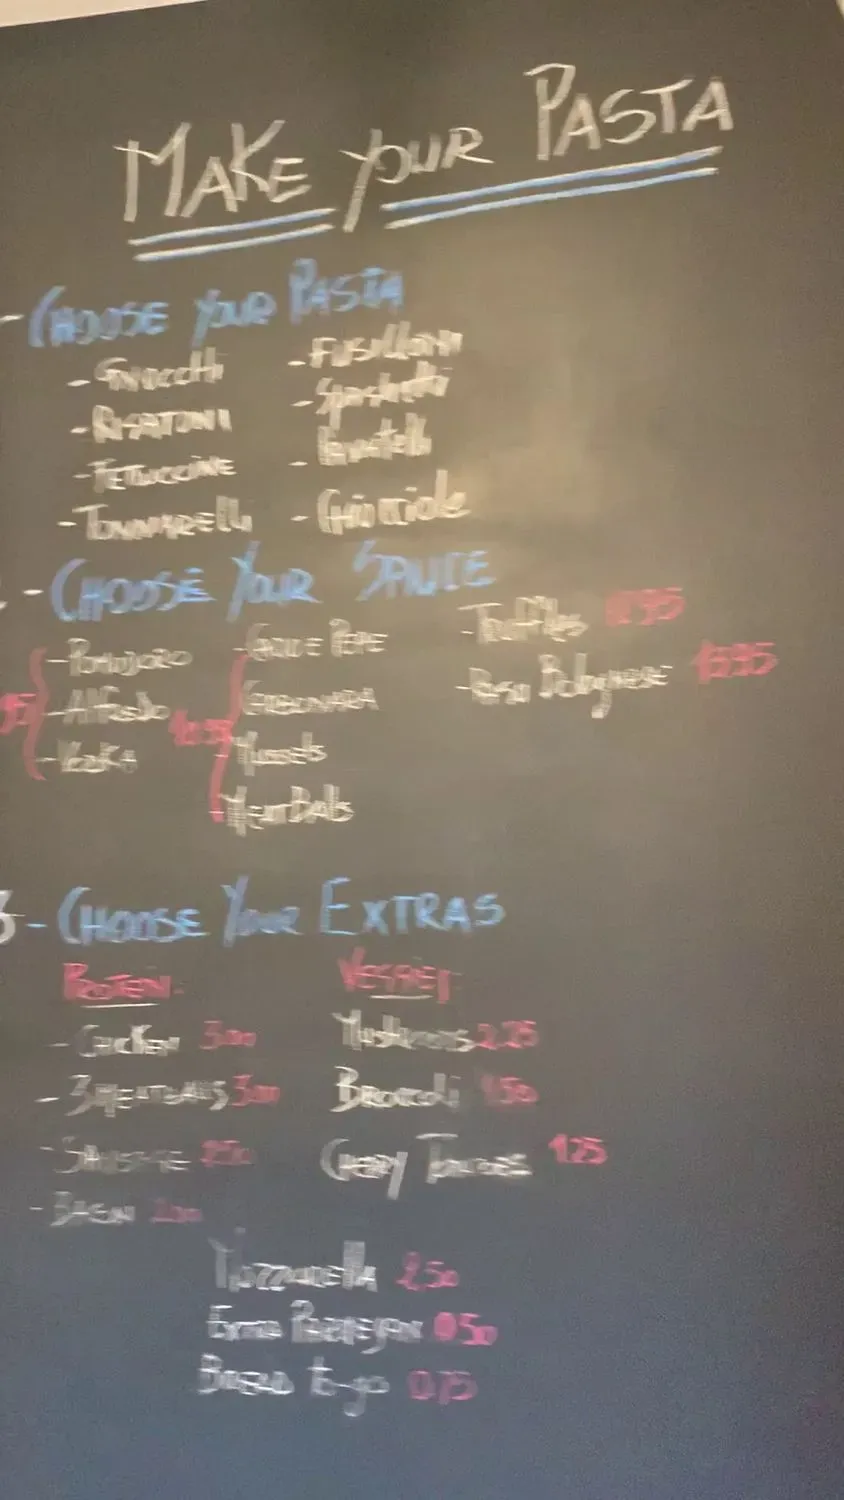 MAKE YOUR PASTA
- CHOOSE YOUR PASTA
- GNOCCHI
- RIGATONI
- FETUCCINE
- TONNARELLI
- FUSILLONI
- Spaghetti
-
- Chiocciole
- CHOOSE YOUR SAUCE
- POMODORO
- Alfredo
-
- CACIO E PEPE
CARBONARA
MUSSELS
- MEATBALLS
- Truffles
- Bolognese
3 - CHOOSE YOUR EXTRAS
PROTEIN
- CHICKEN 3.00
- 3 MEATBALLS 3.00
- SAUSAGE
- BACON 2.00
VEGGIES
MUSHROOMS 2.25
BROCCOLI 1.50
CHERRY TOMATOES 1.25
MOZZARELLA 2.50
EXTRA PARMEJAN 0.50
BREAD to-go 0.75